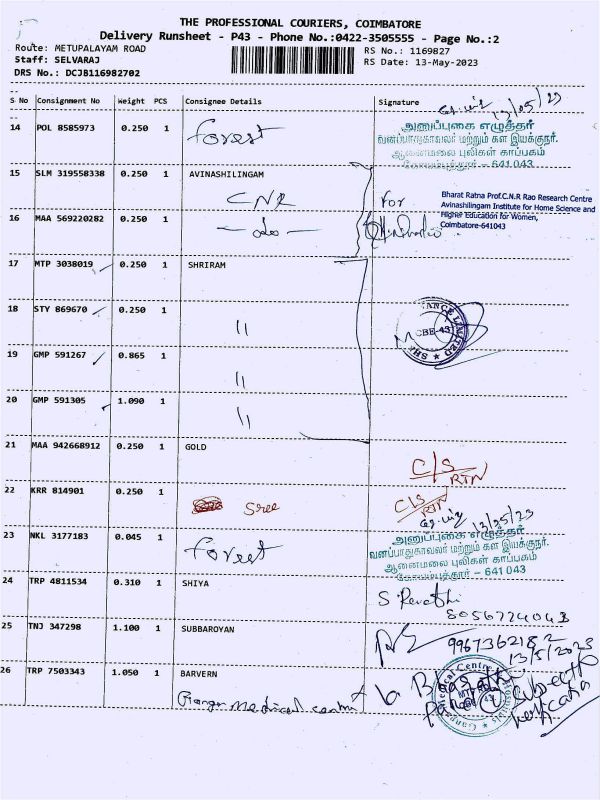 THE PROFESSIONAL COURIERS, COIMBATORE
Delivery Runsheet - P43 - Phone No.:0422-3505555 - Page No.:2
Route: METUPALAYAM ROAD
RS No.: 1169827
Staff: SELVARAJ
RS Date: 13-May-2023
DRS No.: DCJB116982702
S No Consignment No Weight PCS Consignee Details Signature
13/05/23
14 POL 8585973 0.250 1 Forest
அனுப்புகை எழுத்தர்
வனப்பாதுகாவலர் மற்றும் கள இயக்குநர்.
ஆனைமலை புலிகள் காப்பகம்
கோயம்புத்தூர் – 641 043
15 SLM 319558338 0.250 1 AVINASHILINGAM
CNR
For
Bharat Ratna Prof.C.N.R Rao Research Centre
Avinashilingam Institute for Home Science and
Higher Education for Women,
Coimbatore-641043
16 MAA 569220282 0.250 1 — do —
17 MTP 3038019 0.250 1 SHRIRAM
18 STY 869670 0.250 1 "
CBE-43
19 GMP 591267 0.865 1 "
20 GMP 591305 1.090 1 "
21 MAA 942668912 0.250 1 GOLD
C/S
RTN
22 KRR 814901 0.250 1 Sree
C/S
RTN
13/05/23
23 NKL 3177183 0.045 1 Forest
அனுப்புகை எழுத்தர்
வனப்பாதுகாவலர் மற்றும் கள இயக்குநர்.
ஆனைமலை புலிகள் காப்பகம்
கோயம்புத்தூர் – 641 043
24 TRP 4811534 0.310 1 SHIYA
S Revathi
8056724043
25 TNJ 347298 1.100 1 SUBBAROYAN
9967362182
13/5/2023
26 TRP 7503343 1.050 1 BARVERN
Ganga Medical centre